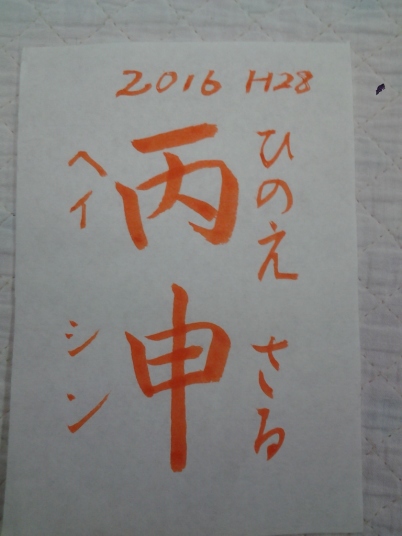 2016 H28
ひのえ さる
丙申
ヘイ シン